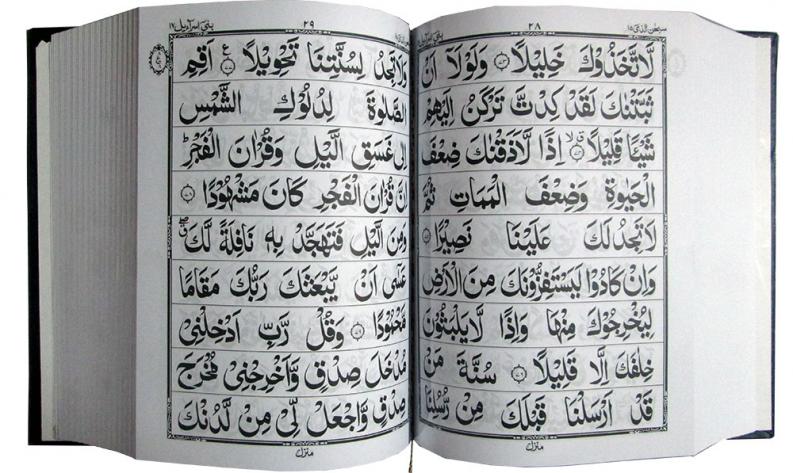 سبحن الذی ١٥
٢٨
لَّاتَّخَذُوۡكَ خَلِیۡلًا وَلَوۡلَاۤ اَنۡ
ثَبَّتۡنٰكَ لَقَدۡ كِدۡتَّ تَرۡكَنُ اِلَیۡهِمۡ
شَیۡـًٔا قَلِیۡلًا اِذًا لَّاَذَقۡنٰكَ ضِعۡفَ
الۡحَیٰوةِ وَضِعۡفَ الۡمَمَاتِ ثُمَّ
لَا تَجِدُ لَكَ عَلَیۡنَا نَصِیۡرًا
وَاِنۡ كَادُوۡا لَیَسۡتَفِزُّوۡنَكَ مِنَ الۡاَرۡضِ
لِیُخۡرِجُوۡكَ مِنۡهَا وَاِذًا لَّا یَلۡبَثُوۡنَ
خِلٰفَكَ اِلَّا قَلِیۡلًا سُنَّةَ مَنۡ
قَدۡ اَرۡسَلۡنَا قَبۡلَكَ مِنۡ رُّسُلِنَا
منزل
بنی اسرآءیل ١٧
٢٩
وَلَا تَجِدُ لِسُنَّتِنَا تَحۡوِیۡلًا ع اَقِمِ
الصَّلٰوةَ لِدُلُوۡكِ الشَّمۡسِ
اِلٰی غَسَقِ الَّیۡلِ وَقُرۡاٰنَ الۡفَجۡرِ ط
اِنَّ قُرۡاٰنَ الۡفَجۡرِ كَانَ مَشۡهُوۡدًا
وَمِنَ الَّیۡلِ فَتَهَجَّدۡ بِهٖ نَافِلَةً لَّكَ
عَسٰۤی اَنۡ یَّبۡعَثَكَ رَبُّكَ مَقَامًا
مَّحۡمُوۡدًا وَقُلۡ رَّبِّ اَدۡخِلۡنِیۡ
مُدۡخَلَ صِدۡقٍ وَّاَخۡرِجۡنِیۡ مُخۡرَجَ
صِدۡقٍ وَّاجۡعَلۡ لِّیۡ مِنۡ لَّدُنۡكَ
منزل